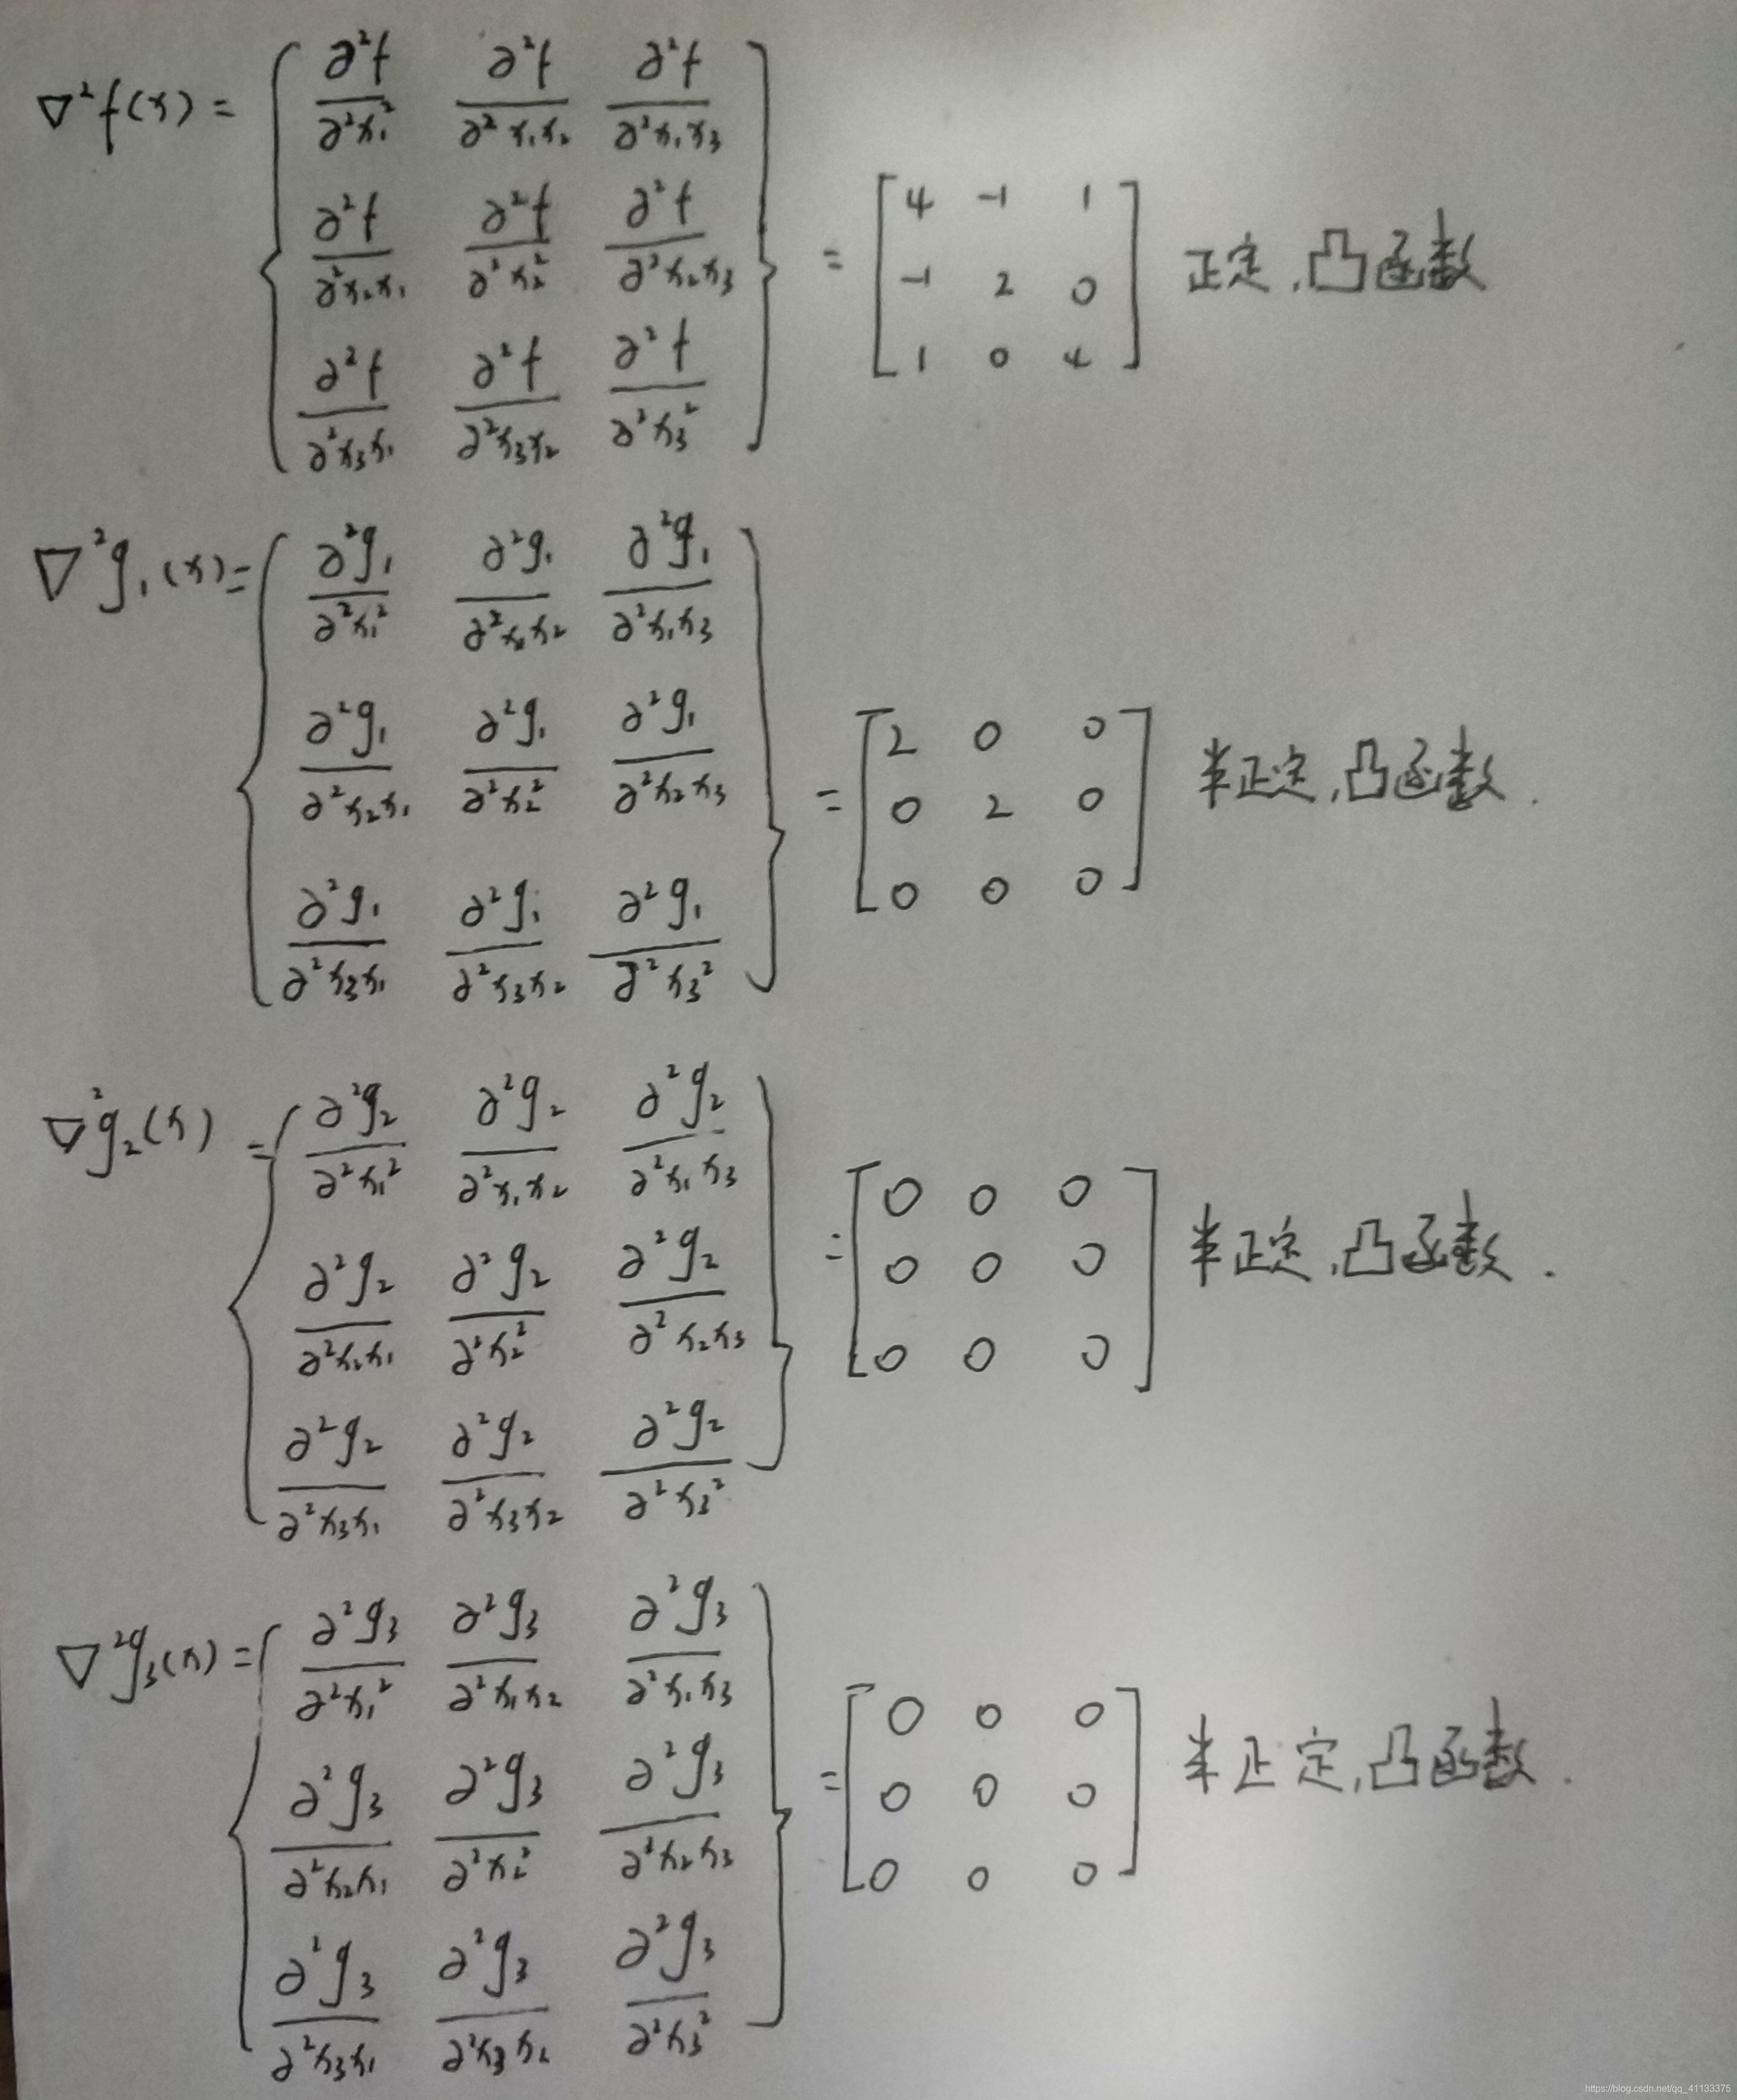 ∇²f(x) = { ∂²f/∂²x₁² ∂²f/∂²x₁x₂ ∂²f/∂²x₁x₃
∂²f/∂²x₂x₁ ∂²f/∂²x₂² ∂²f/∂²x₂x₃
∂²f/∂²x₃x₁ ∂²f/∂²x₃x₂ ∂²f/∂²x₃² }
= [ 4 -1 1
-1 2 0
1 0 4 ] 正定,凸函数
∇²g₁(x) = { ∂²g₁/∂²x₁² ∂²g₁/∂²x₁x₂ ∂²g₁/∂²x₁x₃
∂²g₁/∂²x₂x₁ ∂²g₁/∂²x₂² ∂²g₁/∂²x₂x₃
∂²g₁/∂²x₃x₁ ∂²g₁/∂²x₃x₂ ∂²g₁/∂²x₃² }
= [ 2 0 0
0 2 0
0 0 0 ] 半正定,凸函数.
∇²g₂(x) = { ∂²g₂/∂²x₁² ∂²g₂/∂²x₁x₂ ∂²g₂/∂²x₁x₃
∂²g₂/∂²x₂x₁ ∂²g₂/∂²x₂² ∂²g₂/∂²x₂x₃
∂²g₂/∂²x₃x₁ ∂²g₂/∂²x₃x₂ ∂²g₂/∂²x₃² }
= [ 0 0 0
0 0 0
0 0 0 ] 半正定,凸函数.
∇²g₃(x) = { ∂²g₃/∂²x₁² ∂²g₃/∂²x₁x₂ ∂²g₃/∂²x₁x₃
∂²g₃/∂²x₂x₁ ∂²g₃/∂²x₂² ∂²g₃/∂²x₂x₃
∂²g₃/∂²x₃x₁ ∂²g₃/∂²x₃x₂ ∂²g₃/∂²x₃² }
= [ 0 0 0
0 0 0
0 0 0 ] 半正定,凸函数.
https://blog.csdn.net/qq_41133375